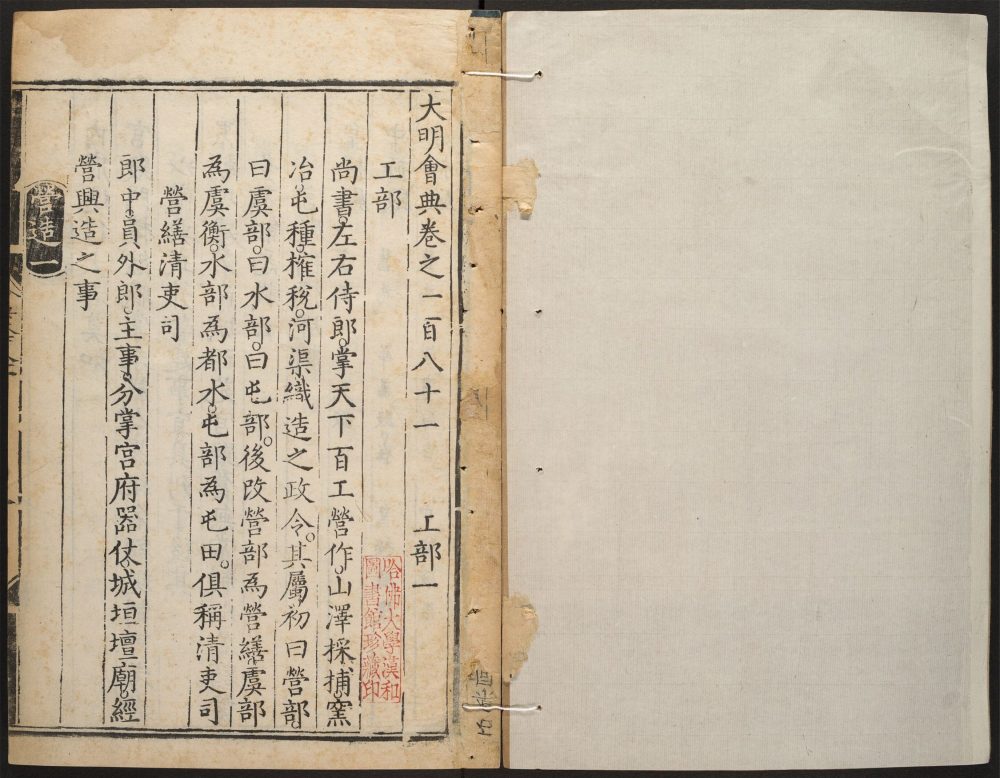 大明會典卷之一百八十一 工部一
工部
尚書。左右侍郎。掌天下百工營作。山澤採捕。窯
冶。屯種。榷稅。河渠織造之政令。其屬初曰營部。
曰虞部。曰水部。曰屯部。後改營部為營繕。虞部
為虞衡。水部為都水。屯部為屯田。俱稱清吏司
營繕清吏司
郎中。員外郎。主事。分掌宮府器仗。城垣壇廟。經
營興造之事
營造一
哈佛大學漢和
圖書館珍藏印